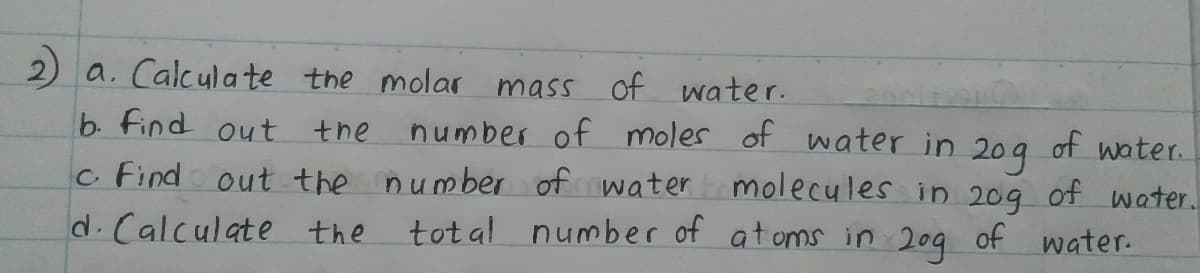 2) a. Calculate the molar mass of water.
b. find out the number of moles of water in 20g of water.
c. Find out the number of water molecules in 20g of water.
d. Calculate the total number of atoms in 20g of water.